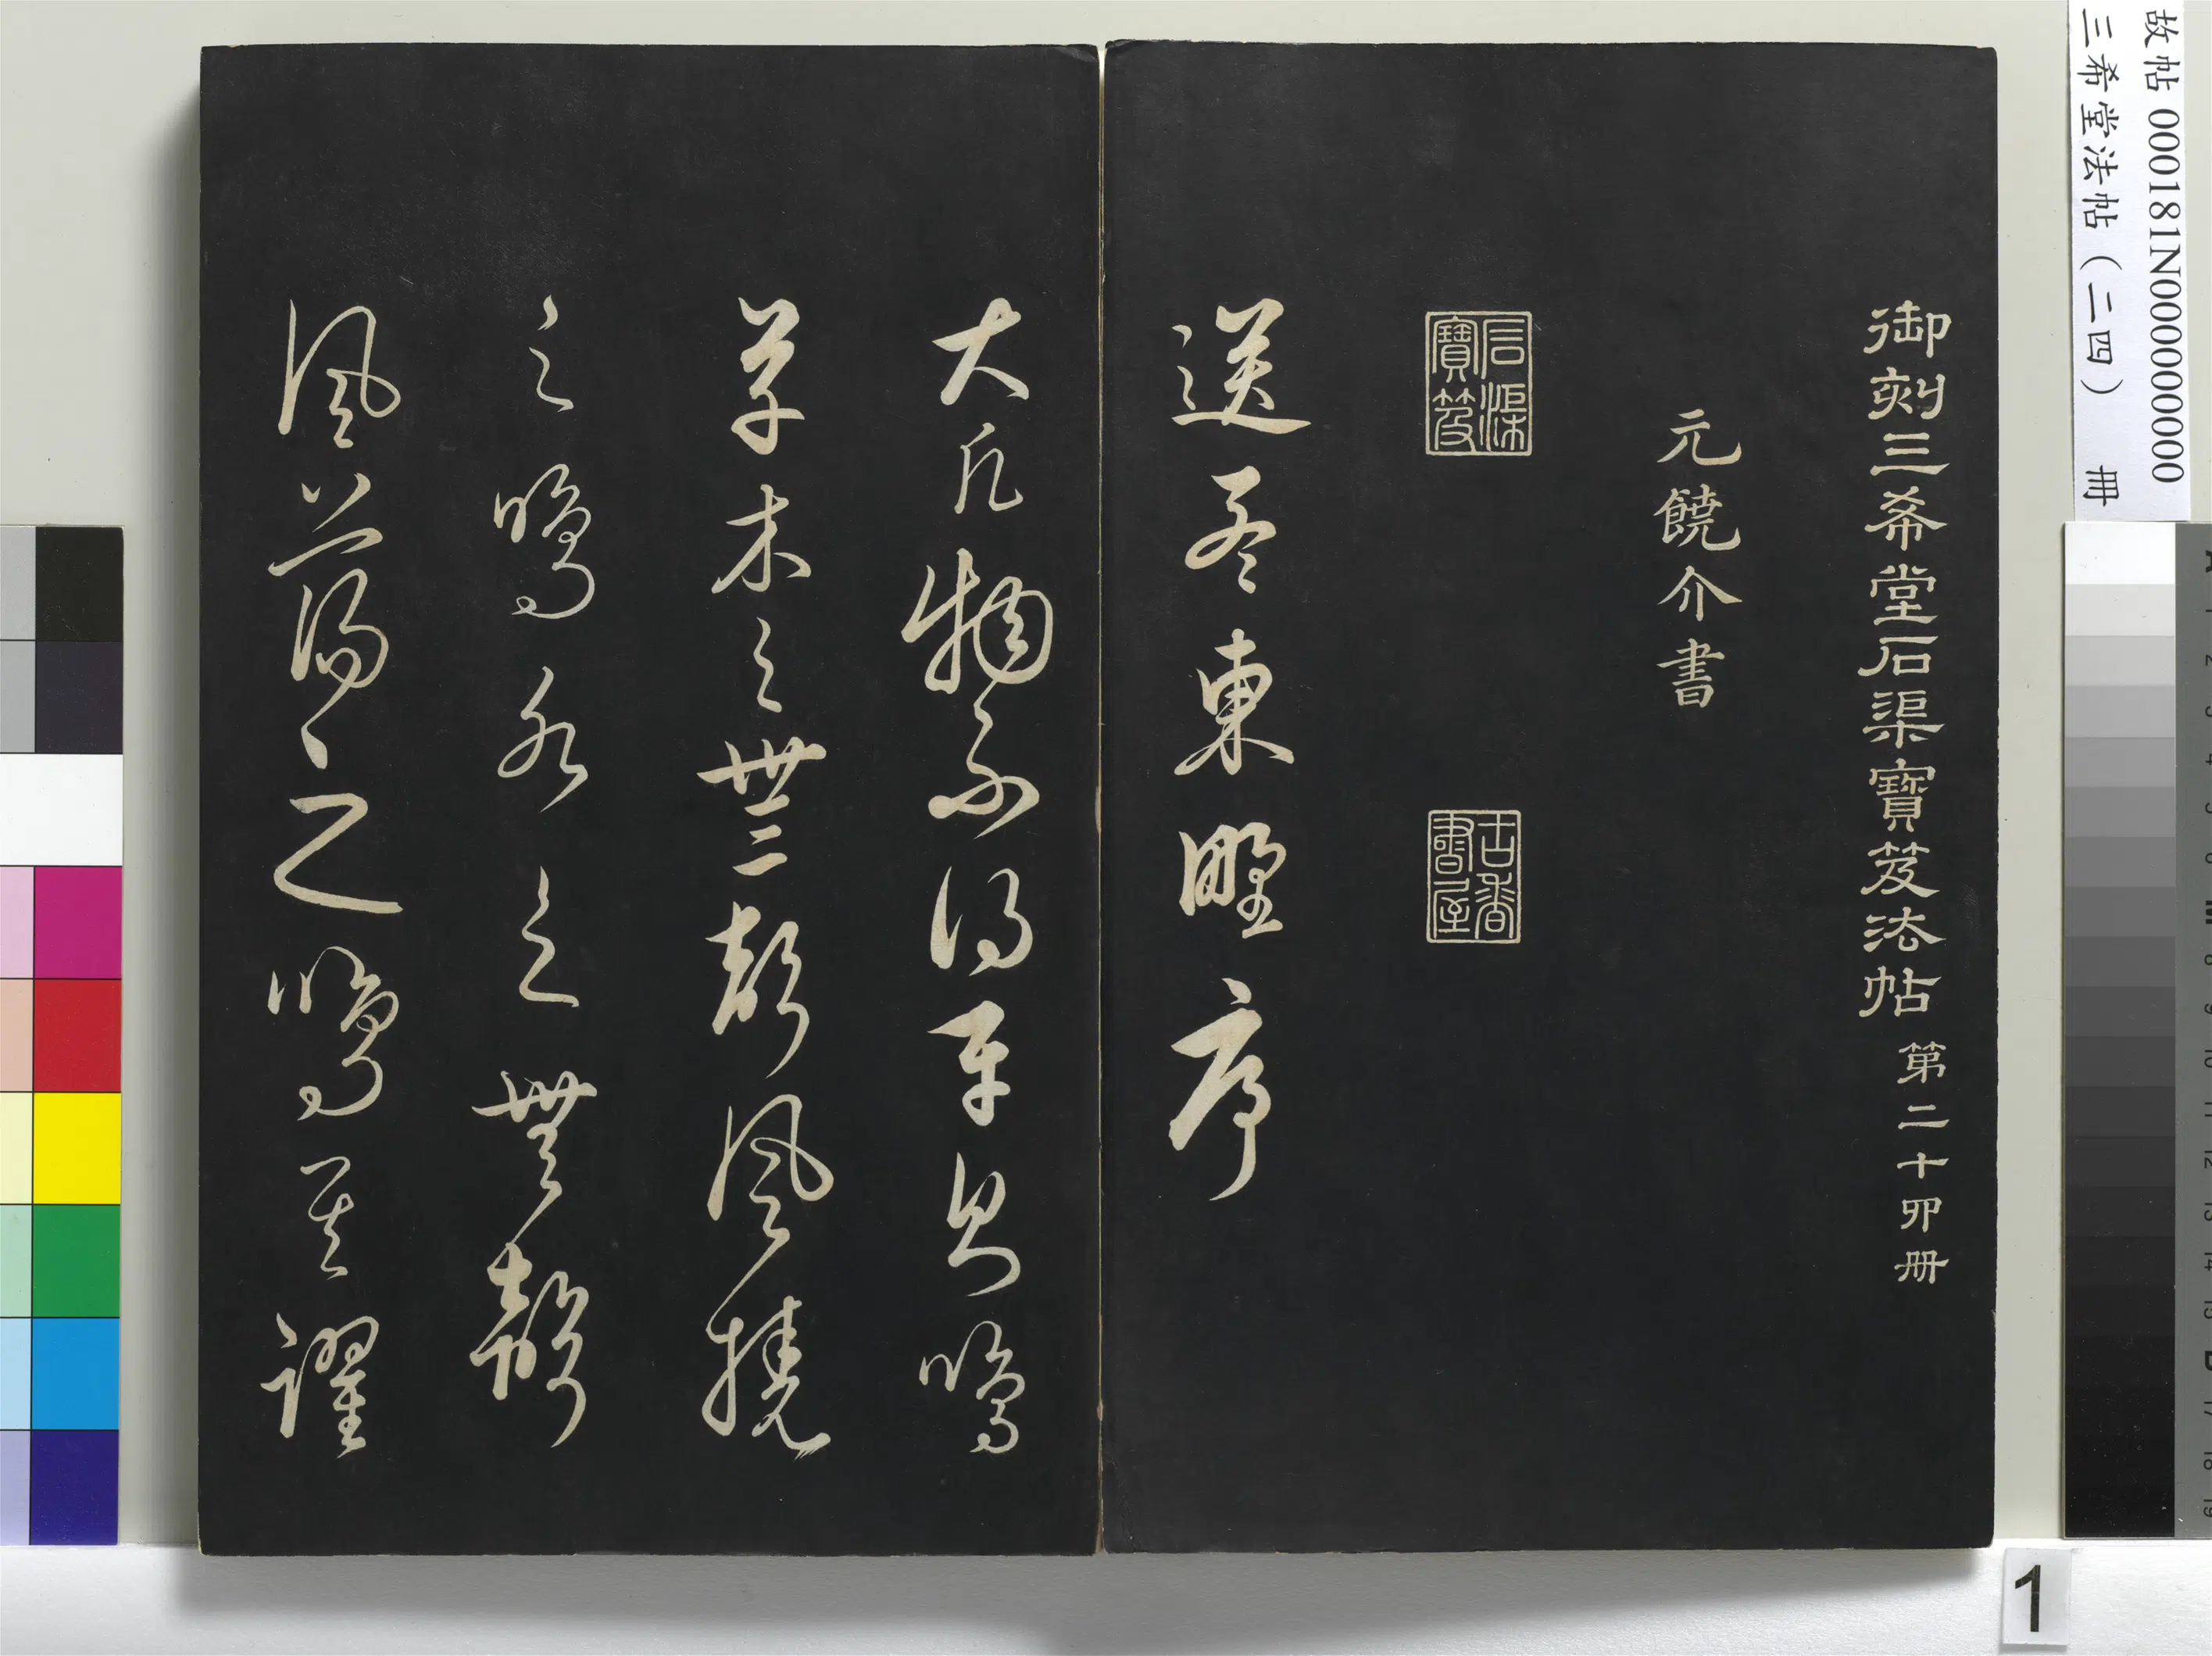 故帖 000181N000000000
三希堂法帖（二四） 冊
御刻三希堂石渠寶笈法帖 第二十四册
元饒介書
石渠寶笈
古香書屋
送孟東野序
大凡物不得平則鳴
草木之無聲風撓
之鳴水之無聲
風蕩之鳴其躍
1